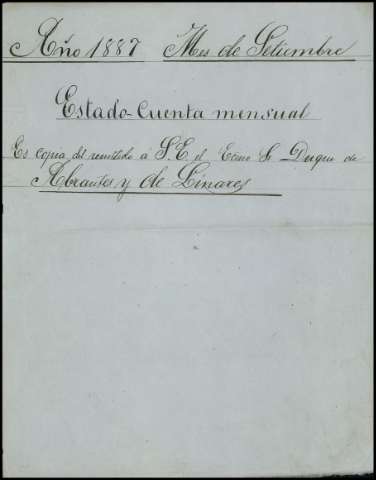 Año 1887 Mes de Setiembre
Estado-Cuenta mensual
Es copia del remitido á S.E. el Exmo Sr Duque de
Abrantes y de Linares